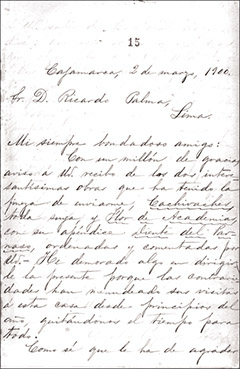 15
Cajamarca, 2 de marzo, 1900.
Sr. D. Ricardo Palma,
Lima.
Mi siempre bondadoso amigo:
Con un millón de gracias
aviso á U. recibo de las dos intere
santísimas obras que ha tenido la
fineza de enviarme, Cachivaches,
toda suya, y Flor de Academias
con su apéndice Diente del Par
naso, ordenadas y comentadas por
U.- He demorado algo en dirigir
le la presente porque las contrarie
dades han menudeado sus visitas
á esta casa desde principios del
año, quitándonos el tiempo para
todo.
Como sé que le ha de agradar